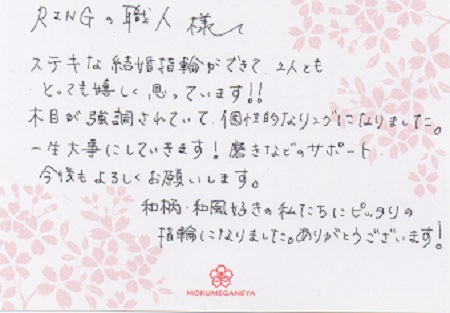 RINGの職人 様へ
ステキな結婚指輪ができて、2人とも
とっても嬉しく思っています!!
木目が強調されていて、個性的なリングになりました。
一生大事にしていきます!磨きなどのサポート
今後もよろしくお願いします。
和柄・和風好きの私たちにピッタリの
指輪になりました。ありがとうございます!
MOKUMEGANEYA